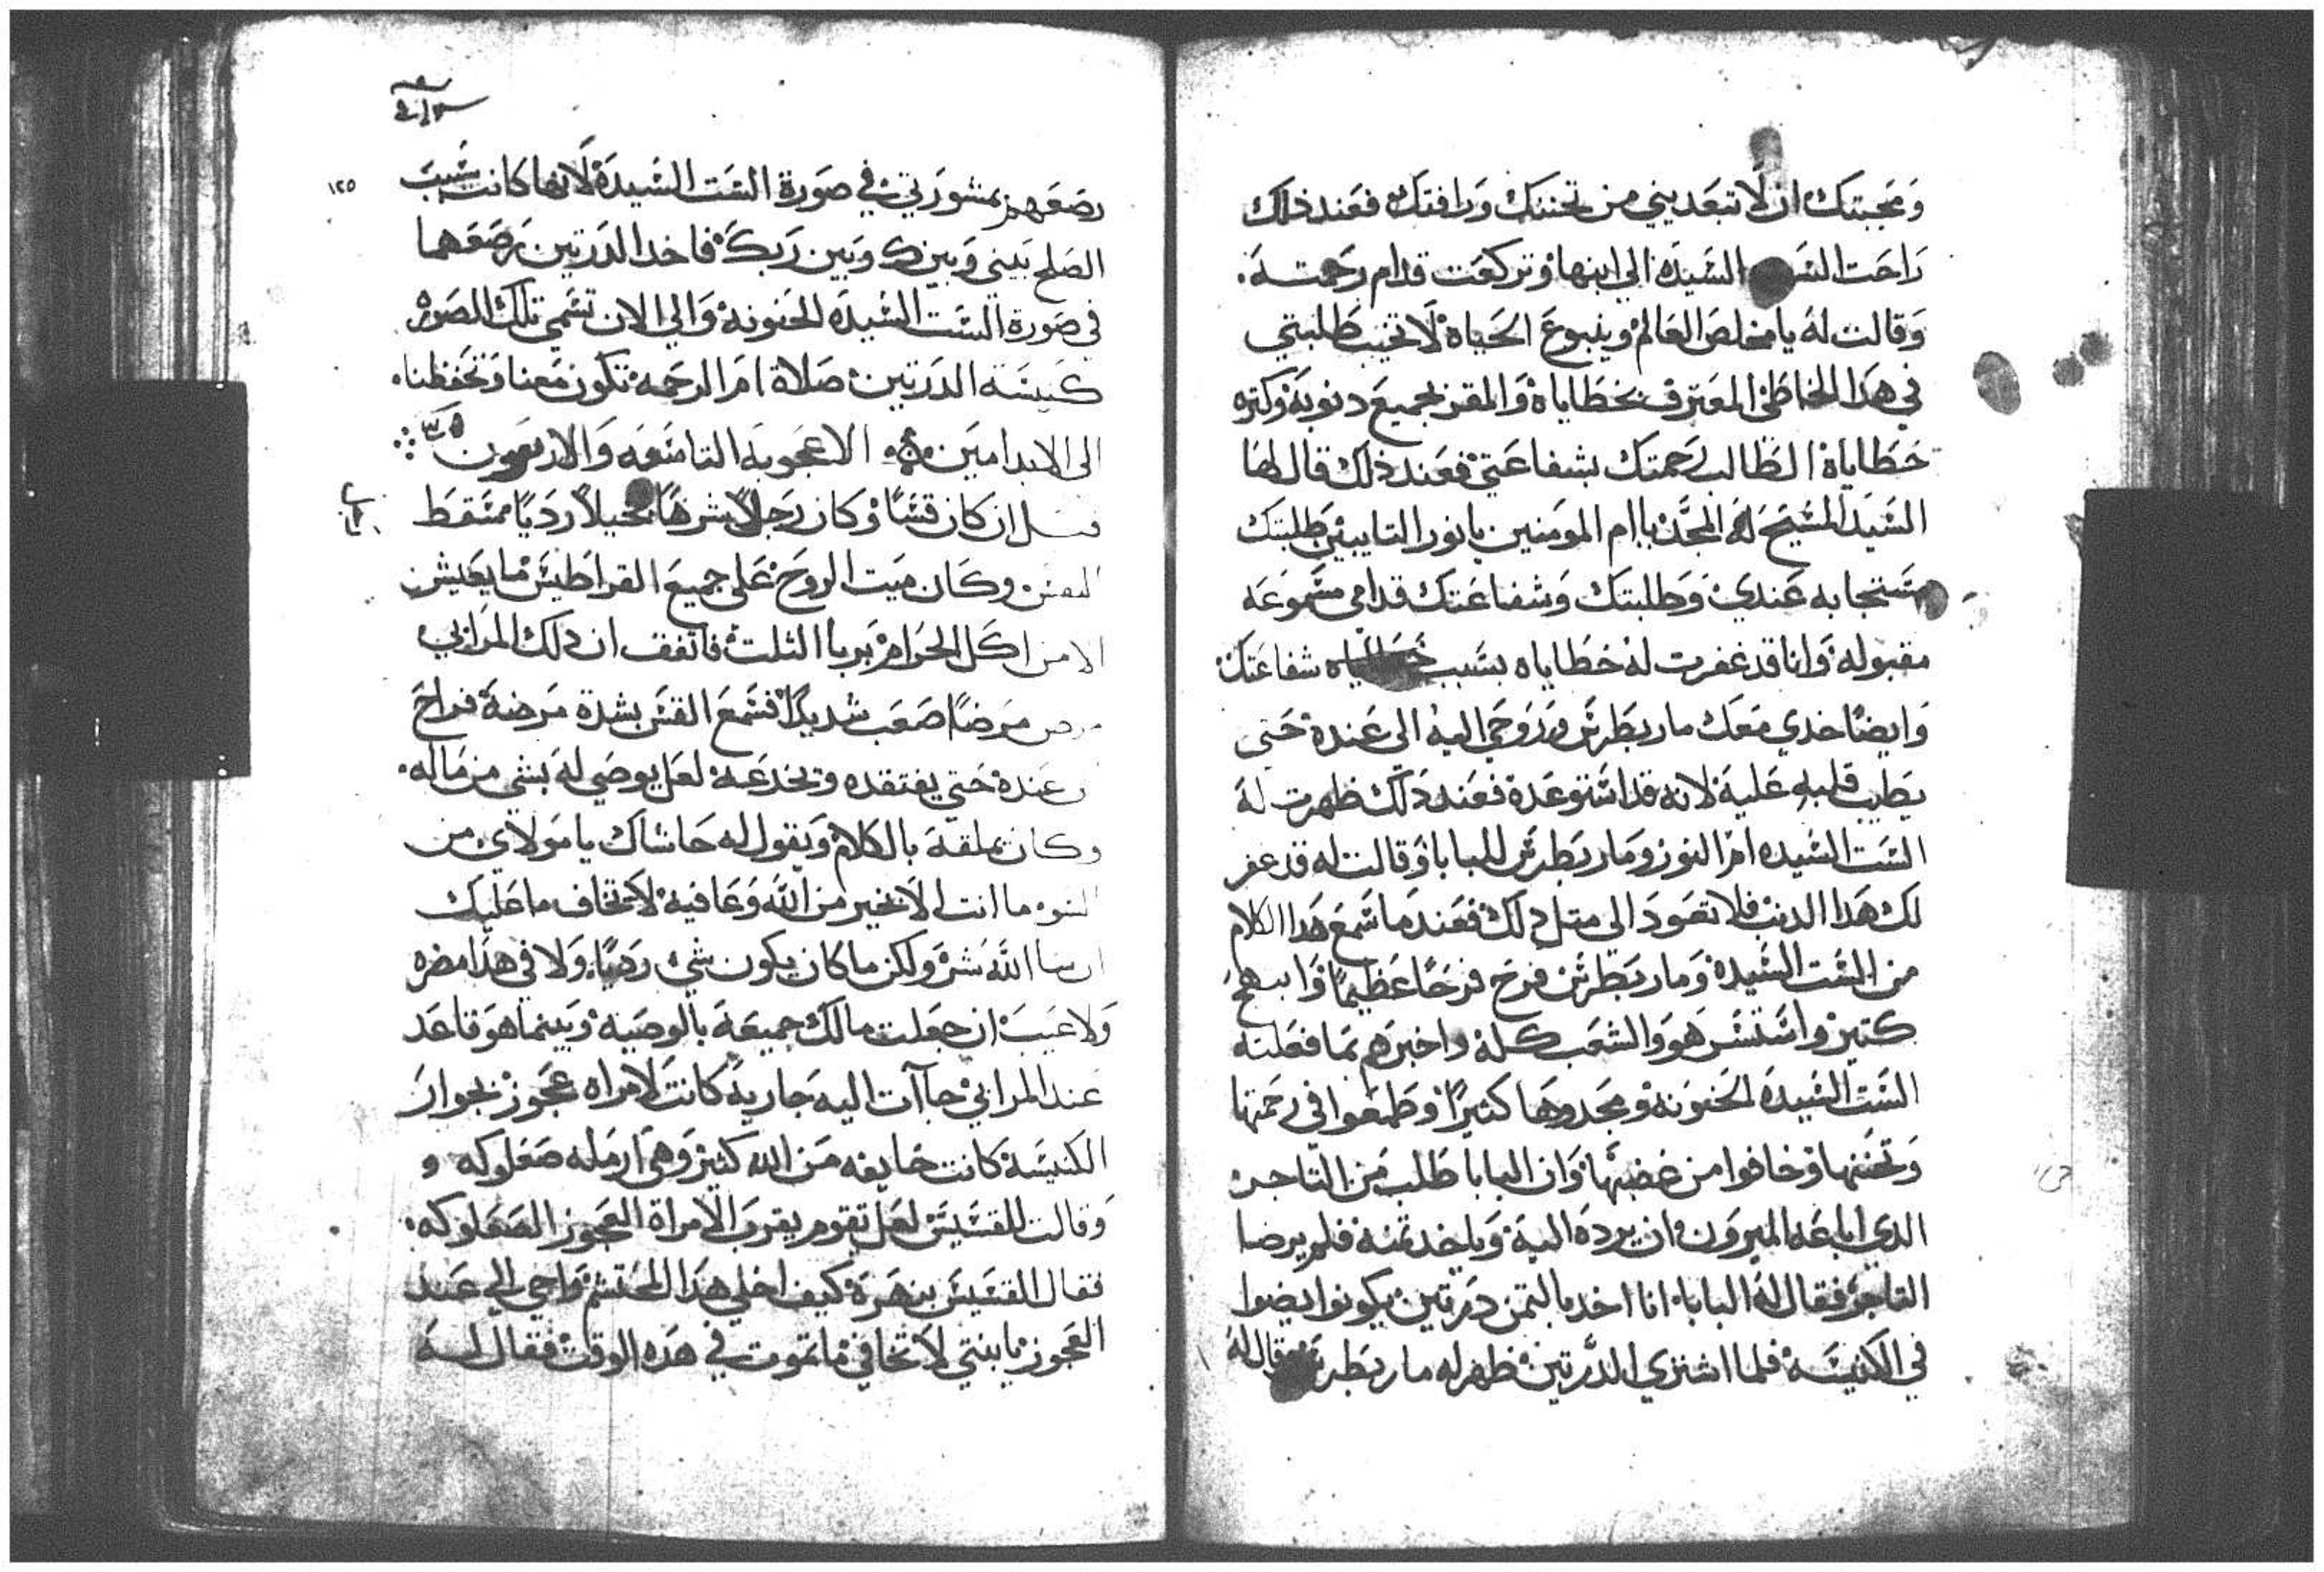 ومحبتك ان لا تبعديني من تحننك ورافتك فعند ذلك
راحت الست السيده الي ابنها وتركعت قدام رحمته
وقالت له يا مخلص العالم وينبوع الحياه لا تخيب طلبتي
في هدا الخاطي المعترف بخطاياه والمقر بجميع دنوبه وكتره
خطاياه الطالب رحمتك بشفاعتي فعند ذلك قال لها
السيد المسيح له المجد يا ام المومنين يا نور التايبين طلبتك
مستجابه عندي وطلبتك وشفاعتك قدامي مسموعه
مقبوله وانا قد غفرت له خطاياه بسبب شفاعتك
وايضا خدي معك مار بطرس وروحي اليه الي عنده حتي
يطيب قلبه عليه لانه قد استوعده فعند ذلك ظهرت له
الست السيده ام النور ومار بطرس للبابا وقالت له قد غفر
لك هدا الدنب فلا تعود الي متل دلك فعند ما سمع هدا الكلام
من الست السيده ومار بطرس فرح فرحا عظيما وابتهج
كتير واستسر هو والشعب كله واخبرهم بما فعلته
الست السيده الحنونه ومجدوها كثيرا وطمعوا في رحمتها
وتحننها وخافوا من غضبها وان البابا طلب من التاجر
الدي اباعه الميرون ان يرده اليه وياخد تمنه فلم يرضا
التاجر فقال له البابا انا اخد بالتمن درتين يكونوا يضوا
في الكنيسه فلما اشتري الدرتين ظهر له مار بطرس وقال له
١٢٥
رصعهم بمشورتي في صورة الست السيدة لانها كانت سبب
الصلح بيني وبينك وبين ربك فاخد الدرتين رصعهما
في صورة الست السيده الحنونه والي الان تسمي تلك الصوره
كنيسة الدرتين صلاة ام الرحمه تكون معنا وتحفظنا
الي الابد امين الاعجوبه التاسعه والاربعون
قيل ان كان قسا وكان رجلا شرها بخيلا رديا
وكان ميت الروح علي جميع القراطيس ما يعيش
الا من اكل الحرام بربا الثلث فاتفق ان دلك المرابي
مرض مرضا صعب شديدا فسمع القس بشدة مرضه فراح
عنده حتي يفتقده وتخدعه لعل يوصي له بشي من ماله
وكان بالكلام ويقول له حاشاك يا مولاي من
السوء ما انت الا بخير من الله وعافيه لا تخاف ما عليك
ان شا الله شر ولكن ما كان يكون شي ولا في هذا مضره
ولا عيب ان جعلت مالك جميعه بالوصيه وبينما هو قاعد
عند المرابي جاآت اليه جاريه كانت لامراه عجوز بجوار
الكنيسه كانت خايفه من الله كتير وهي ارمله صعلوكه و
وقالت للقسيس لعل تقوم بقرب الامراة العجوز الصعلوكه
فقال القسيس بنهره كيف اخلي هدا المحتشم واجي الي عند
العجوز يا بنتي لا تخافي ما تموت في هده الوقت فقال له